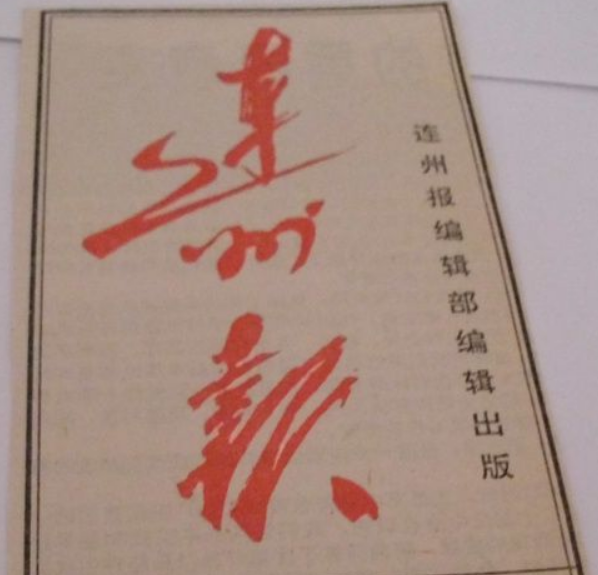 連州報
连州报编辑部编辑出版